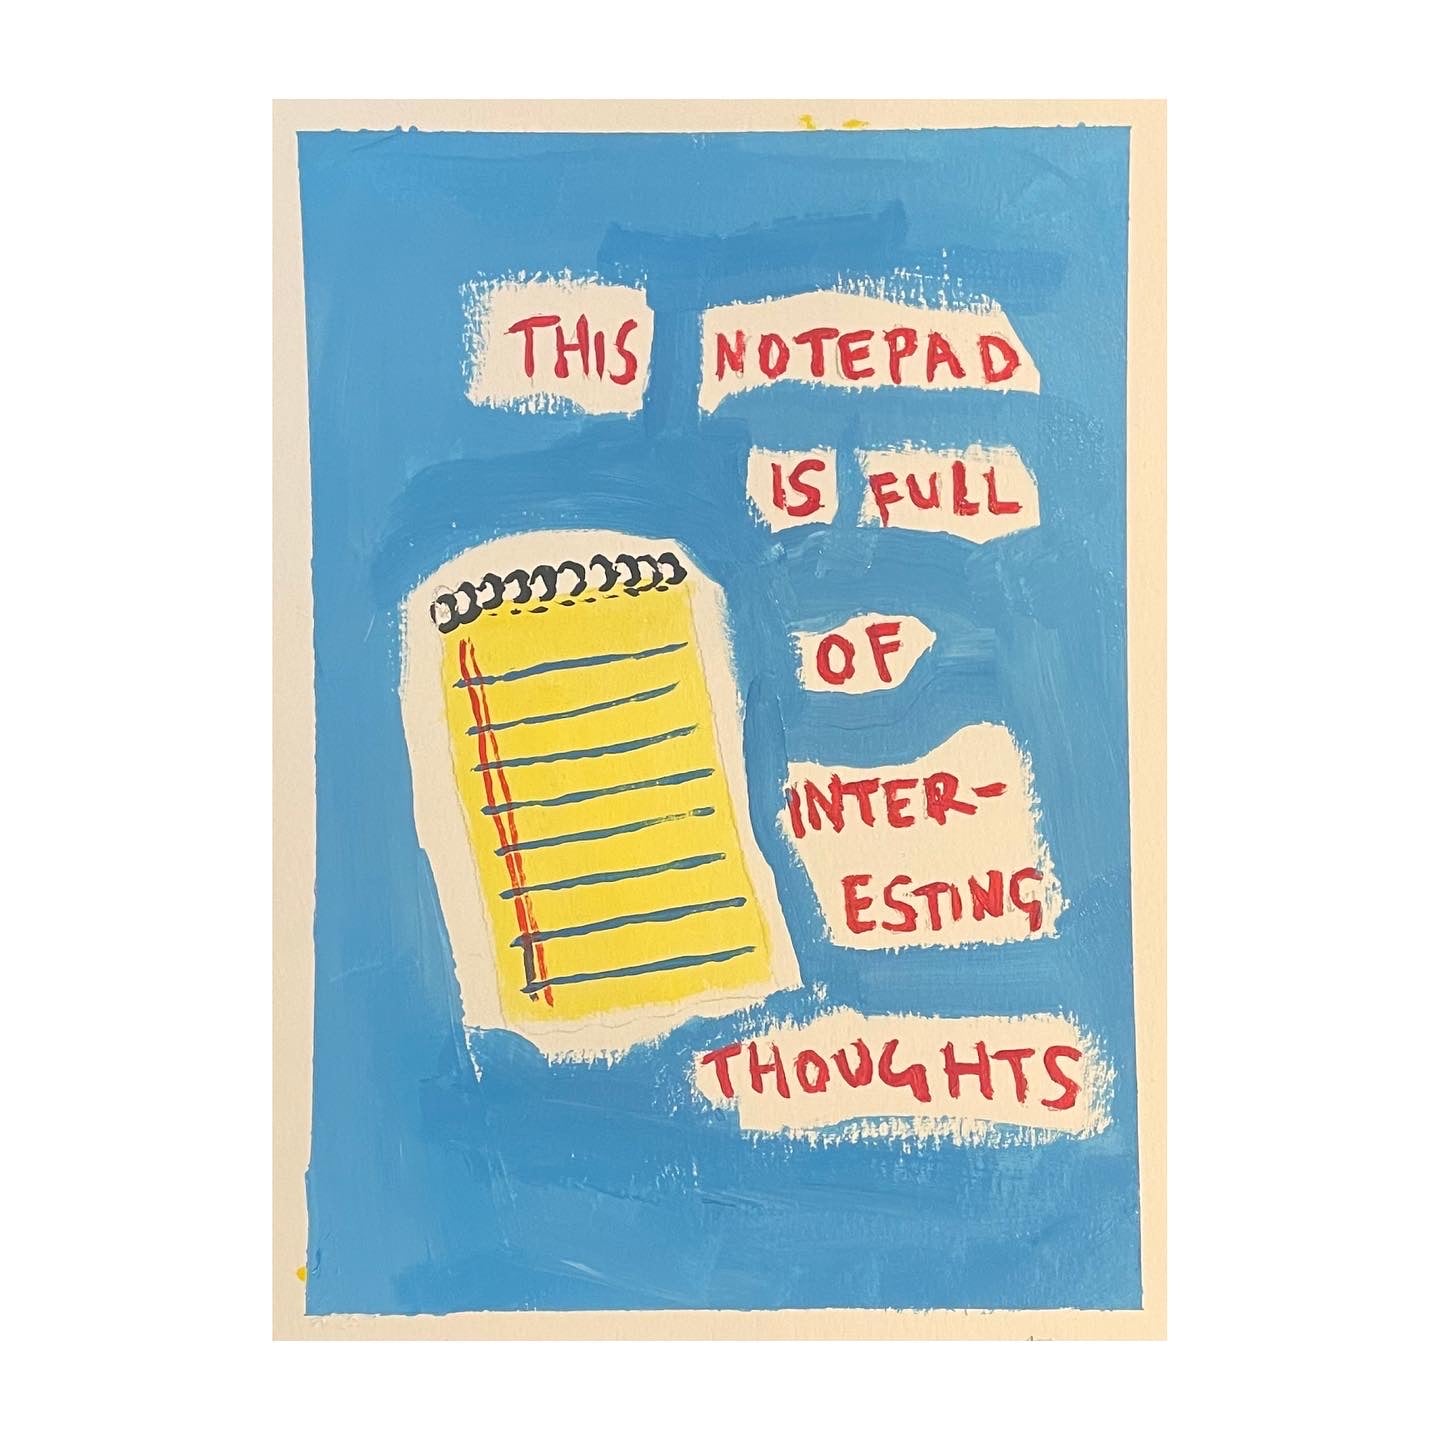 THIS NOTEPAD
IS FULL
OF
INTER-
ESTING
THOUGHTS